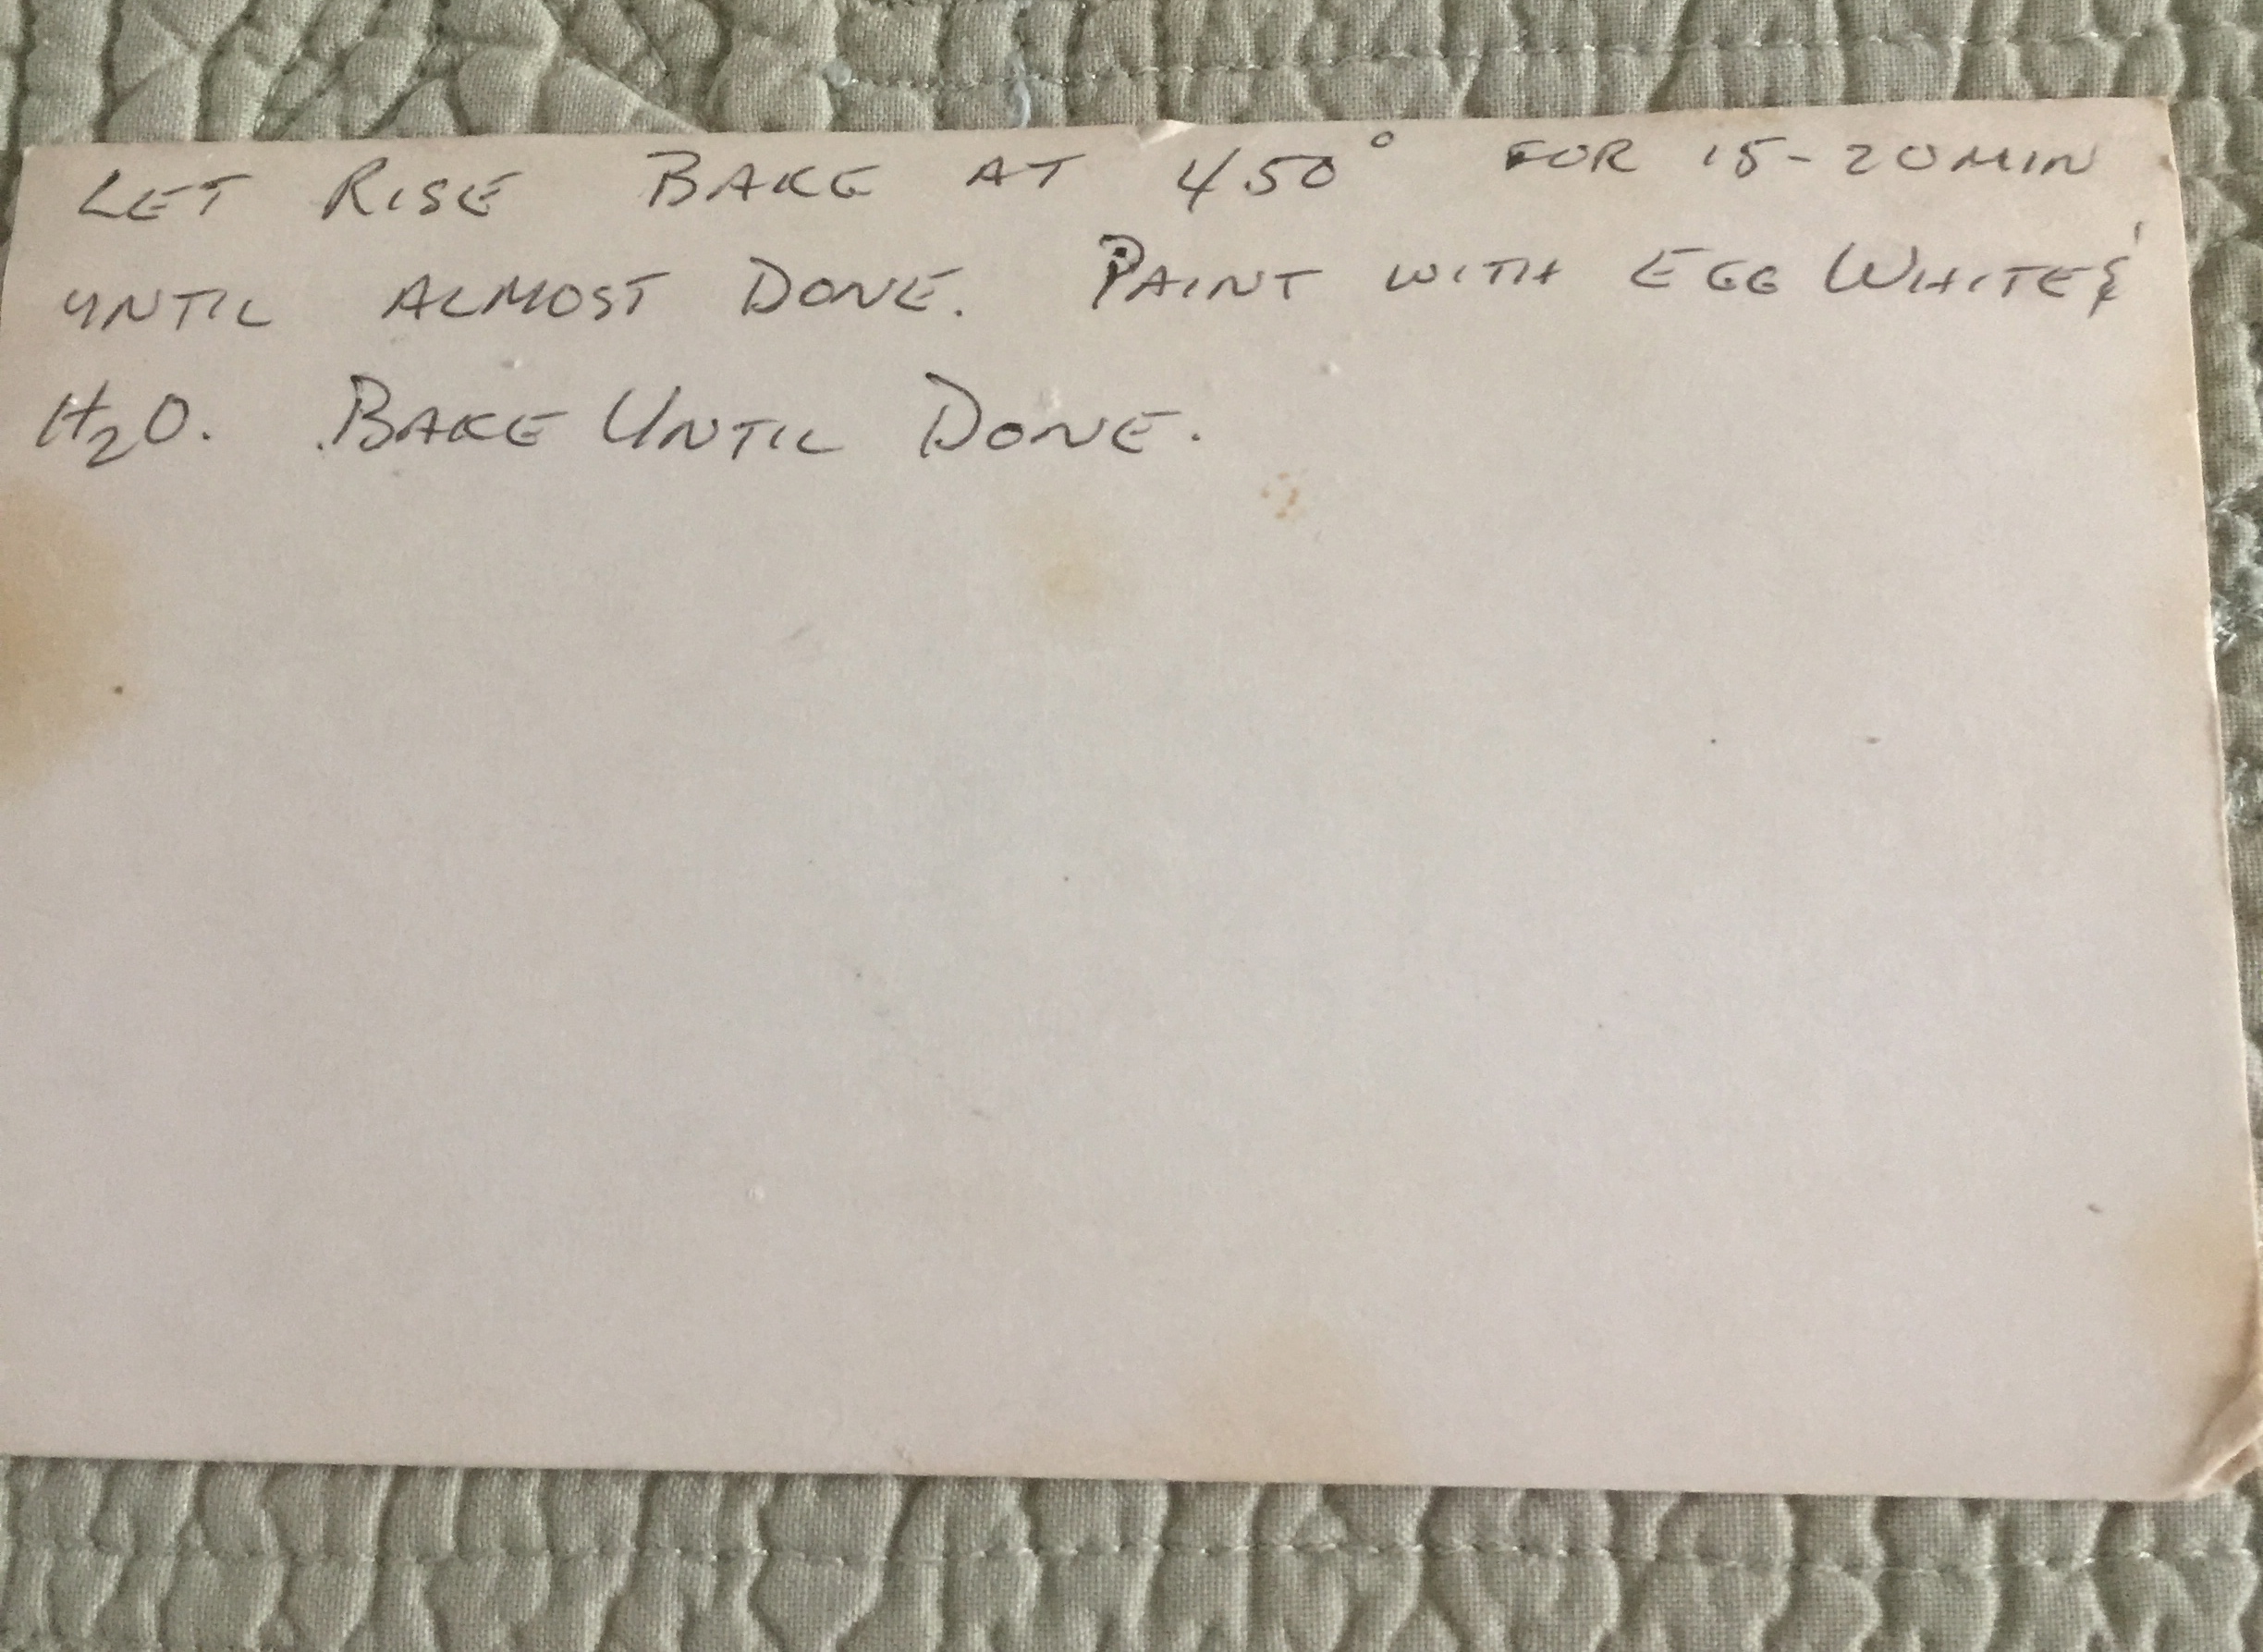 LET RISE BAKE AT 450° FOR 15-20 MIN
UNTIL ALMOST DONE. PAINT WITH EGG WHITE &
H2O. BAKE UNTIL DONE.